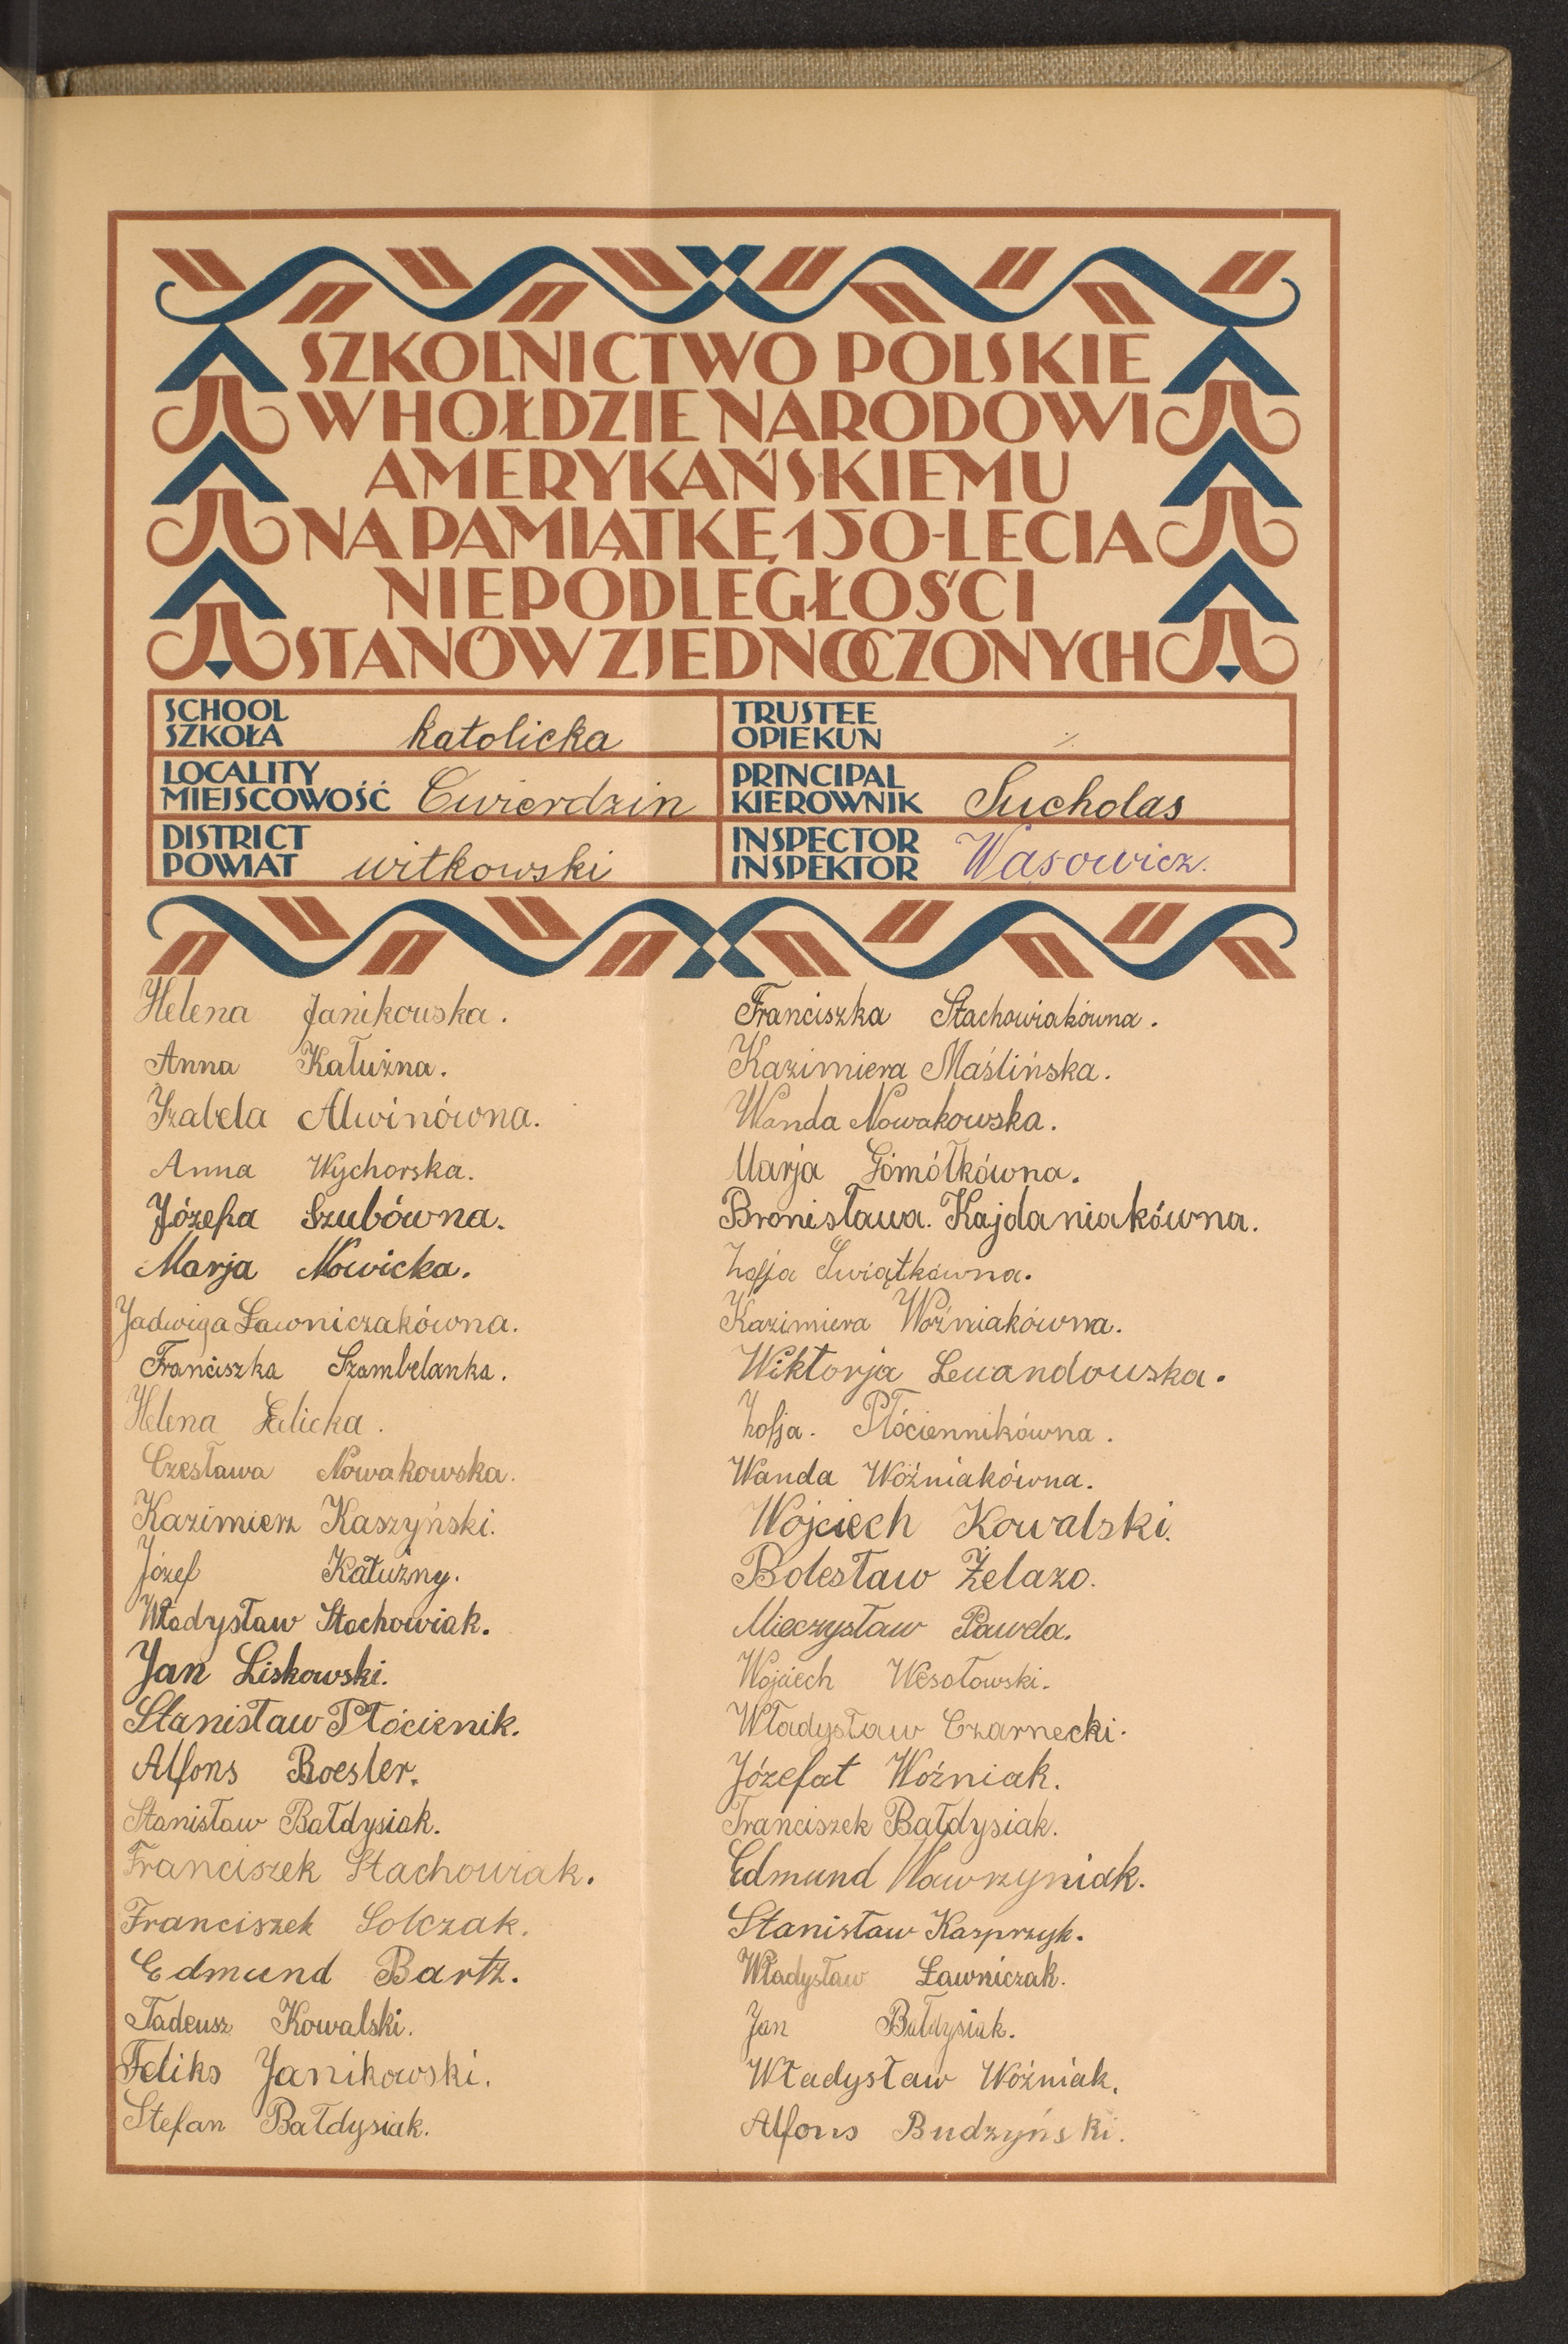 SZKOLNICTWO POLSKIE
W HOŁDZIE NARODOWI
AMERYKAŃSKIEMU
NA PAMIĄTKĘ 150-LECIA
NIEPODLEGŁOŚCI
STANÓW ZJEDNOCZONYCH
SCHOOL
SZKOŁA katolicka
LOCALITY
MIEJSCOWOŚĆ Cwierdzin
DISTRICT
POWIAT witkowski
TRUSTEE
OPIEKUN ·/.
PRINCIPAL
KIEROWNIK Sucholas
INSPECTOR
INSPEKTOR Wąsowicz.
Helena Janikowska.
Anna Kałużna.
Izabela Alwinówna.
Anna Wychorska.
Józefa Szubówna.
Marja Nowicka.
Jadwiga Ławniczakówna.
Franciszka Szambelanka.
Helena Łelicka.
Czesława Nowakowska.
Kazimierz Kaszyński.
Józef Kałużny.
Władysław Stachowiak.
Jan Liskowski.
Stanisław Płócienik.
Alfons Roesler.
Stanisław Bałdysiak.
Franciszek Stachowiak.
Franciszek Solczak.
Edmund Bartz.
Tadeusz Kowalski.
Feliks Janikowski.
Stefan Bałdysiak.
Franciszka Stachowiakówna.
Kazimiera Maślińska.
Wanda Nowakowska.
Marja Gómółkówna.
Bronisława. Kajdaniakówna.
Zofja Świątkówna.
Kazimiera Woźniakówna.
Wiktorja Lewandowska.
Zofja. Płóciennikówna.
Wanda Woźniakówna.
Wojciech Kowalski.
Bolesław Żelazo.
Mieczysław Pawela.
Wojciech Wesołowski.
Władysław Czarnecki.
Józefat Woźniak.
Franciszek Bałdysiak.
Edmund Wawrzyniak.
Stanisław Kasprzyk.
Władysław Ławniczak.
Jan Bałdysiak.
Władysław Woźniak.
Alfons Budzyński.